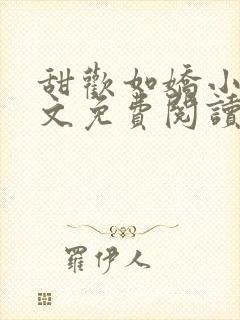 甜歡如嬌小
文免費閱讀
羅伊人